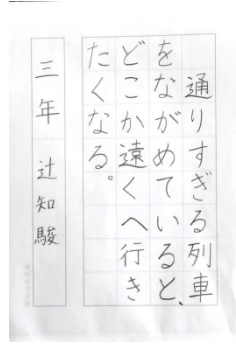 通りすぎる列車
をながめていると、
どこか遠くへ行き
たくなる。
三年 辻知駿